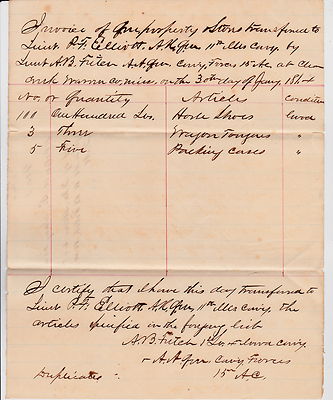 Invoice of Qm property & Stores transferred to
Lieut P.F. Elliott A.R.Qm 11th Ills Cavy. by
Lieut A.B. Fitch A.A.Qm Cavy. Forces 15 AC at
Co. Miss. on the 30th day of Jany. 1864
No. or Quantity Articles Condition
100 One Hundred Lbs. Horse Shoes Good
3 Three Wagon Tongues "
5 Five Packing Cases "
I certify that I have this day transferred to
Lieut P.F. Elliott A.R.Qm 11th Ills Cavy. the
articles specified in the list
A.B. Fitch 1st Lt 4 Iowa Cavy.
& A.A.Qm Cavy Forces
15 A.C.
Duplicates